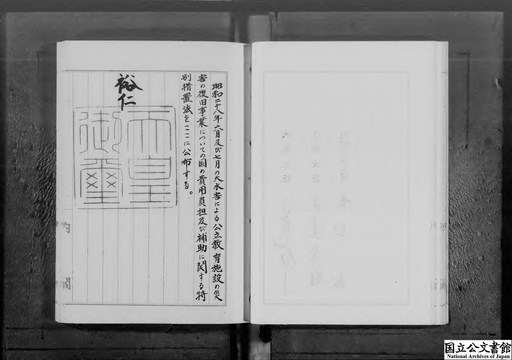 昭和二十八年六月及び七月の大水害による公立教育施設の災
害の復旧事業についての国の費用負担及び補助に関する特
別措置法をここに公布する。
裕仁
天皇
御璽
国立公文書館
National Archives of Japan